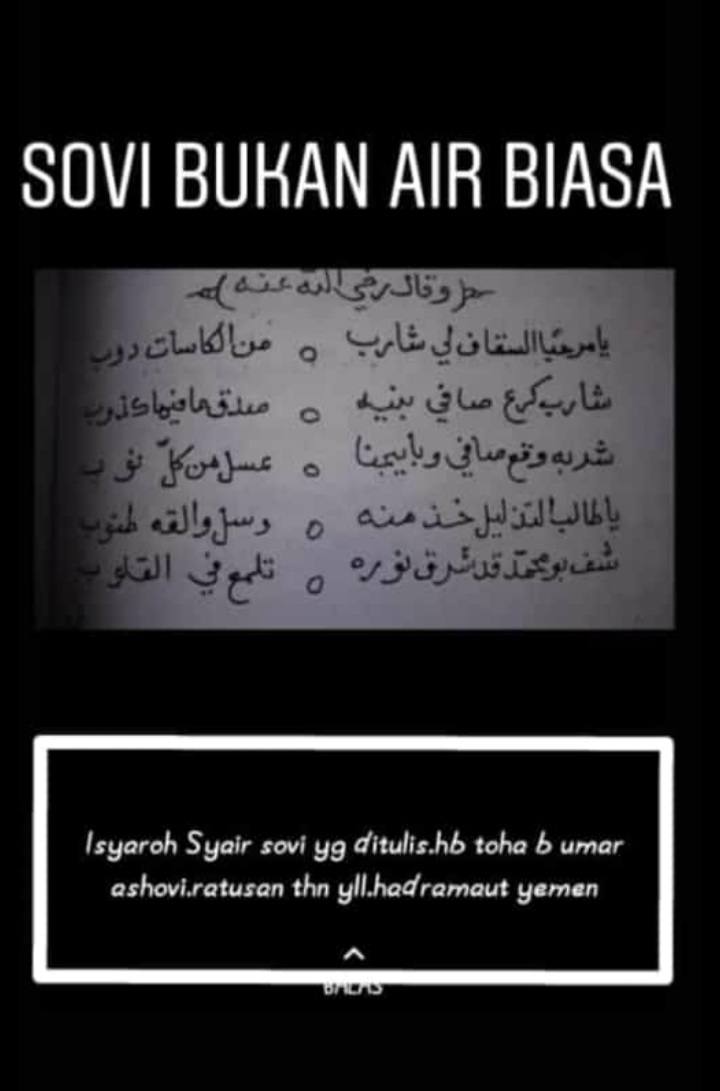 SOVI BUKAN AIR BIASA
﴿وقال رضي الله عنه﴾
يا مرحبا السقاف لي شارب ٥ من الكاسات دوب
شارب كرع صافي بنيه ٥ صدق ما فيها كذوب
شربه وقع صافي وبأيدينا ٥ عسل من كلّ نوب
يا طالب التذليل خذ منه ٥ وسل والقه طنوب
شف بو محمّد قد شرق نوره ٥ تلمع في القلوب
Isyaroh Syair sovi yg ditulis.hb toha b umar
ashovi.ratusan thn yll.hadramaut yemen
BALAS